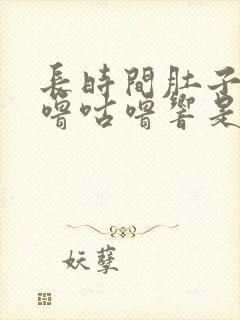 長時間肚子
嚕咕嚕響是
妖孽